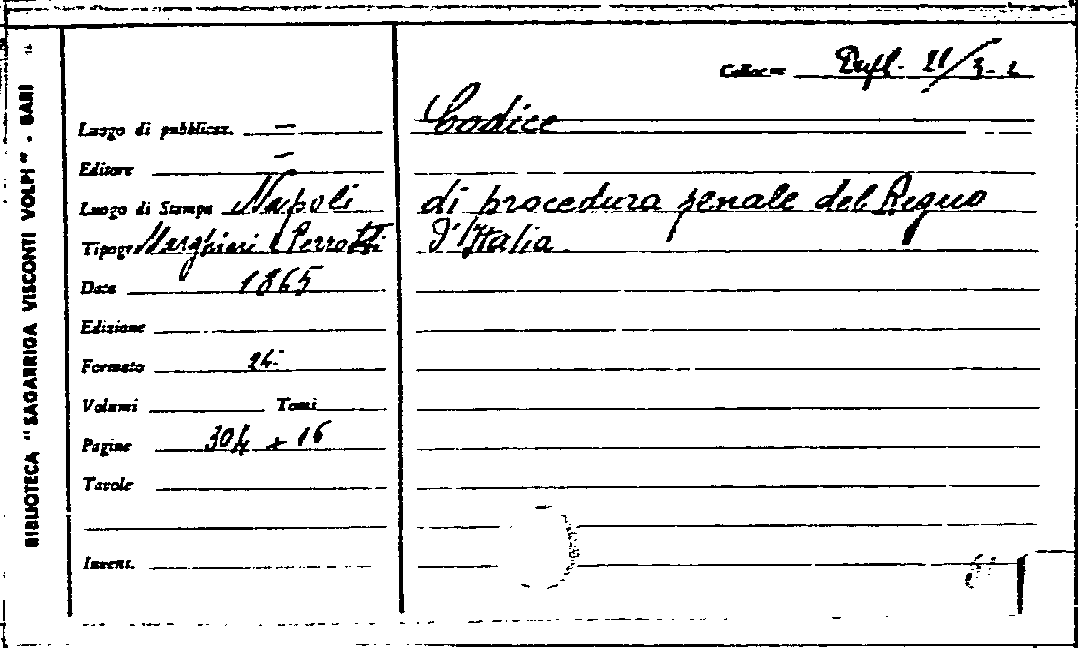 BIBLIOTECA "SAGARRIGA VISCONTI VOLPI" - BARI
Collocaz. Dupl. 21/3-2
Luogo di pubblicaz. —
Editore —
Luogo di Stampa Napoli
Tipogr. Marghieri e Perrotti
Data 1865
Edizione
Formato 24°
Volumi Tomi
Pagine 304 + 16
Tavole
Invent.
Codice
di procedura penale del Regno
d'Italia.